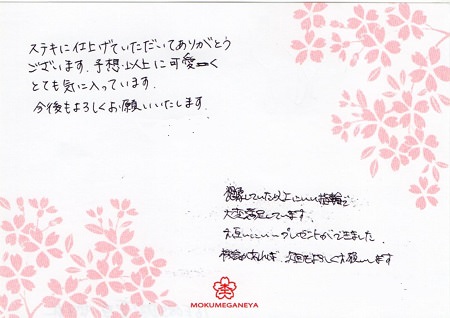 ステキに仕上げていただいてありがとう
ございます。予想以上に可愛く
とても気に入っています。
今後もよろしくお願いいたします。
想像していた以上にいい指輪で
大変満足しています。
お互いにいいプレゼントができました。
機会があれば、次回もよろしくお願いします
MOKUMEGANEYA